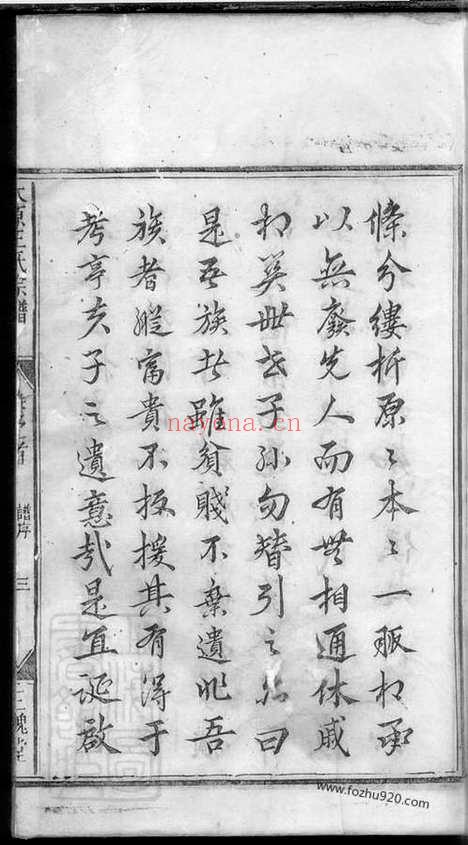 條分縷析原〻本〻一脈相承
以無廢先人而有無相通休戚
相關世世子孫勿替引之爾曰
是吾族者雖貧賤不棄遺非吾
族者縱富貴不扳援其有得于
考亭夫子之遺意哉是宜誕啟
太原王氏宗譜
譜序
三
三槐堂
nayona.cn
www.fozhu920.com